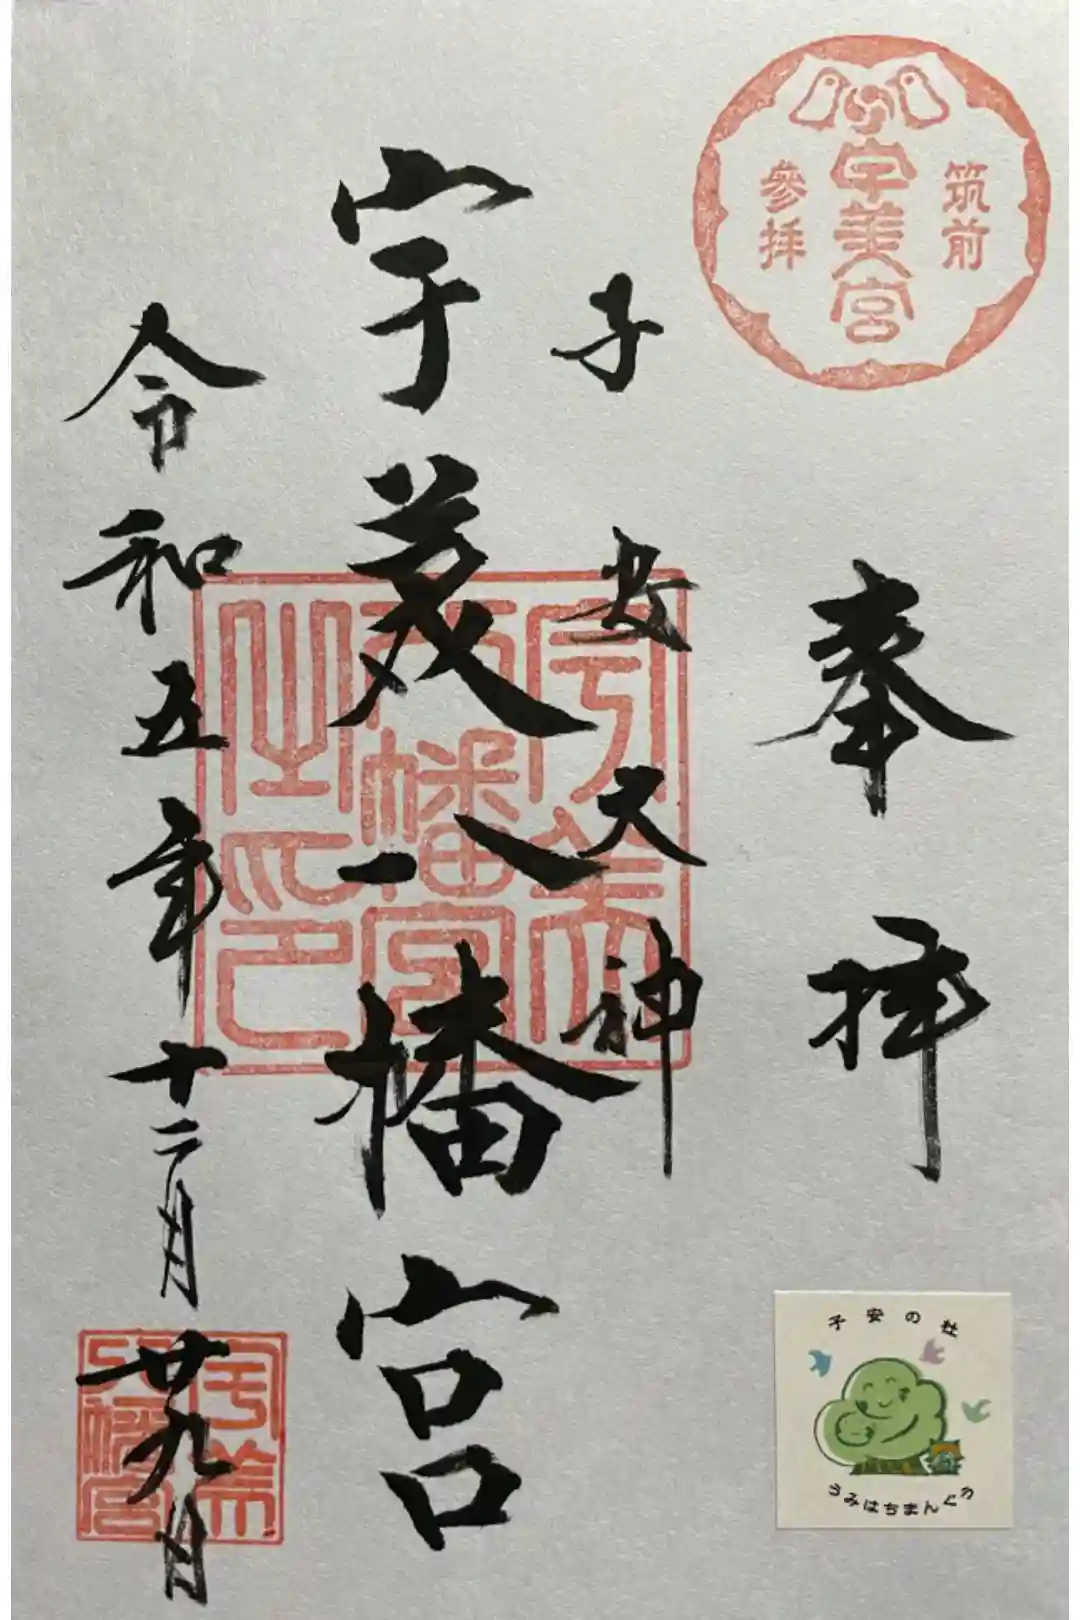 筑前
宇美宮
參拝
奉拝
子安大神
宇美八幡宮
令和五年十二月廿九日
宇美
八幡宮
之印
宇美
八幡宮
子安の杜
うみはちまんぐう